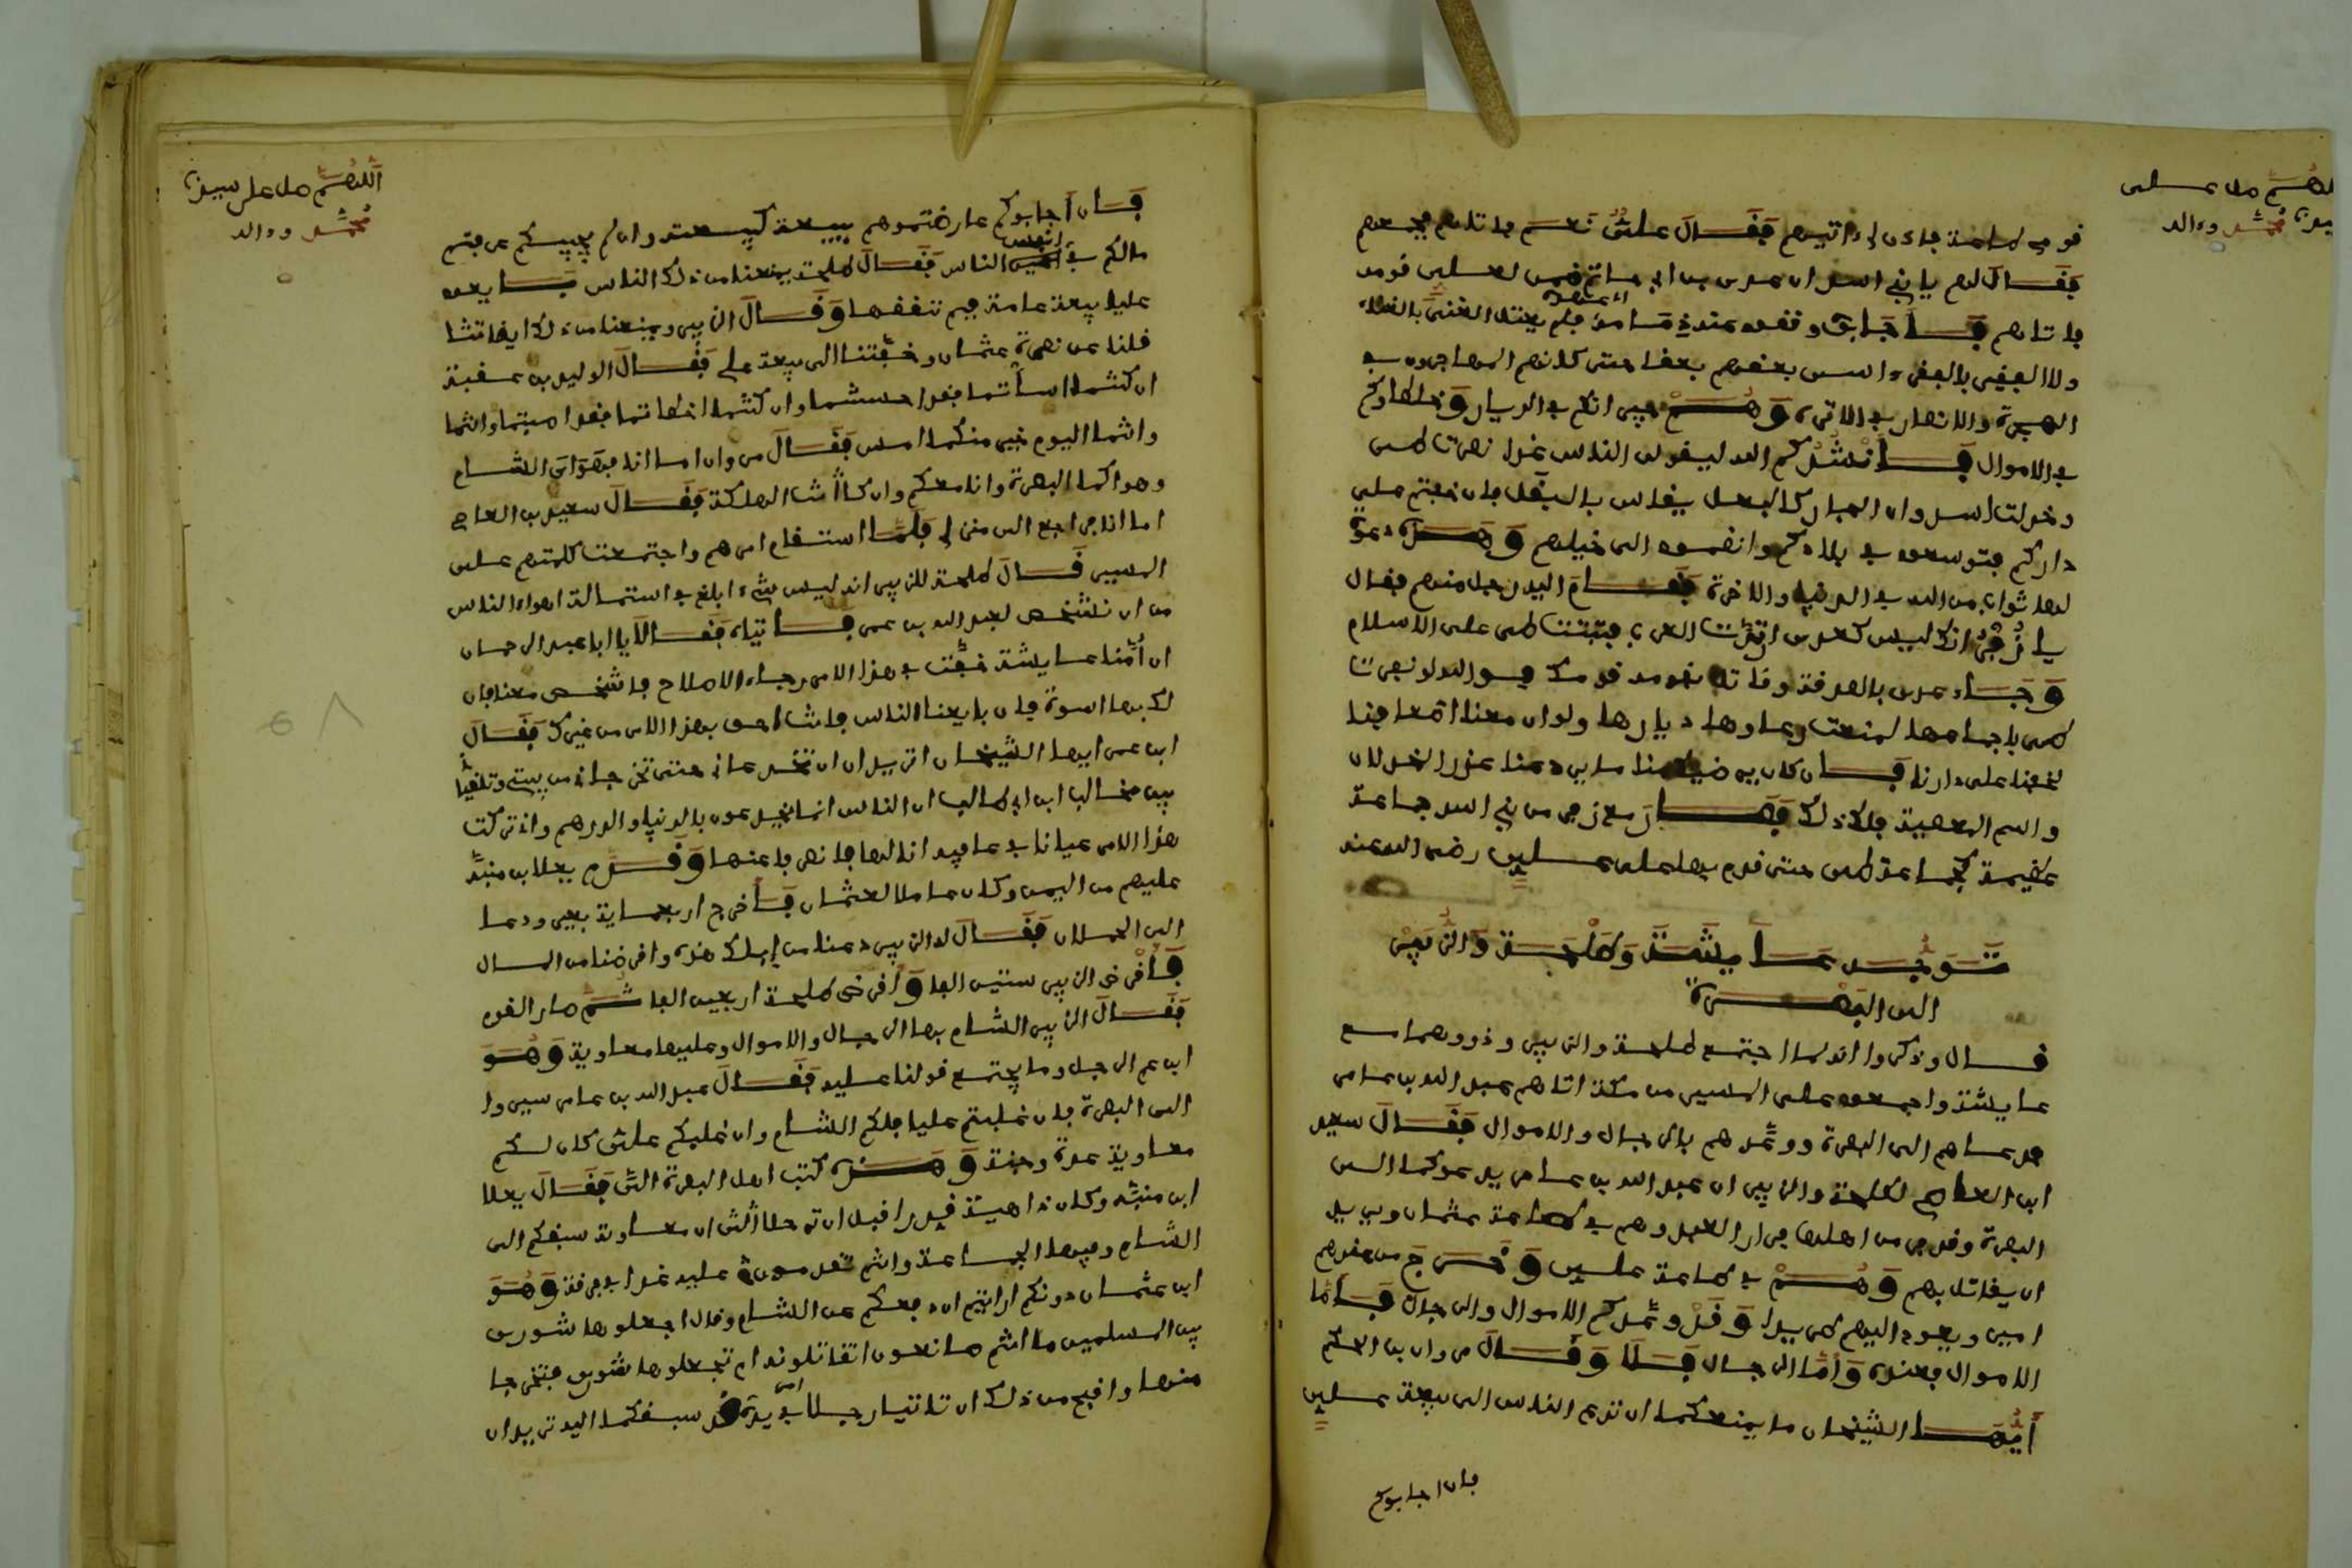 اللهم صل على
سيدنا محمد وءاله
قومي طاعة فاذن لي اتيهم فقال علي نعم فاتاهم فجمعهم
فقال لهم يا بني اسد ان عدي بن حاتم ضمن لعلي قومه
فاتاهم فاجابوه وقضوا عنه ذمامه فلم يعتل الغني بالغنا
ولا الفقير بالفقر واسى بعضهم بعضا حتى كانهم المهاجرون في
الهجرة والانصار في الاثرة وهم جيرانكم في الديار وخلطاوكم
في الاموال فانشدكم الله ليقولن الناس غدا نصرت طي
وخذلت اسد وان الجار كالنعل يقاس بالنعل فان خفتم على
داركم فتوسعوا في بلادكم وانضموا الى خيلهم وهذه دعوة
لها ثواب من الله في الدنيا والاخرة فقام اليه رجل منهم فقال
يا زفر انك ليس كعدي ارتدت العرب فثبتت طي على الاسلام
وجاء عدي بالصدقة وقاتل بقومه قومك فوالله لو نصرت
طي باجمعها لمنعت رعاوها ديارها ولو ان معنا اضعافنا
لخفنا على دارنا فان كان يرضيك منا ما يردعنا عذر الخذلان
واسم المعصية فلك ذلك فصار مع زفر من بني اسد جماعة
عظيمة كجماعة طي حتى قدم بها على علي رضي الله عنه
توجه عايشة وطلحة والزبير
الى البصرة
قال وذكروا انه لما اجتمع طلحة والزبير وذووهما مع
عايشة واجمعوا على المسير من مكة اتاهم عبد الله بن عامر
فدعاهم الى البصرة ووعدهم بالرجال والاموال فقال سعيد
ابن العاص لطلحة والزبير ان عبد الله بن عامر يدعوكما الى
البصرة وقد فر من اهلها فرار العبد وهم في طاعة عثمان ويريد
ان يقاتل بهم وهم في طاعة علي وخرج من عندهم
امير ويعود اليهم طريدا وقد وعدكم الاموال والرجال فاما
الاموال فعنده واما الرجال فلا وقال مروان بن الحكم
ايها الشيخان ما يمنعكما ان تدعو الناس الى بيعة علي
فان اجابوكم
اللهم صل على سيدنا
محمد وءاله
فان اجابوكم عارضتموهم ببيعة كبيعته وان لم يجيبوكم عرفتم
مالكم في انفس الناس فقال طلحة يمنعنا من ذلك الناس بايعوا
عليا بيعة عامة فبم ننقضها وقال الزبير ويمنعنا من ذلك ايضا تثا
قلنا عن نصرة عثمان وخفتنا الى بيعة علي فقال الوليد بن عقبة
ان كنتما اسأتما فقد احسنتما وان كنتما اخطاتما فقد اصبتما وانتما
وانتما اليوم خير منكما امس فقال مروان اما انا فهواي الشام
وهواكما البصرة وانا معكم وان كانت الهلكة فقال سعيد بن العاص
اما انا فراجع الى منزلي فلما استقام امرهم واجتمعت كلمتهم على
المسير قال طلحة للزبير انه ليس شيء ابلغ في استمالة اهواء الناس
من ان نشخص لعبد الله بن عمر فاتياه فقالا يا ابا عبد الرحمان
ان أمنا عايشة خفت في هذا الامر رجاء الاصلاح فاشخص معنا فان
لك بها اسوة فان بايعنا الناس فانت احق بهذا الامر من غيرك فقال
ابن عمر ايها الشيخان اتريدان ان تخدعاني حتى تخرجاني من بيتي وتلقيا
بين مخالب ابن ابي طالب ان الناس انما يخدعون بالدنيا والدرهم واني تركت
هذا الامر عيانا في عافية انالها فانصرفا عنها وقدم يعلا بن منبه
عليهم من اليمن وكان عاملا لعثمان فاخرج اربعماية بعير ودعا
الى الحملان فقال له الزبير دعنا من ابلك هذه واقرضنا من المال
فاقرض الزبير ستين الفا واقرض طلحة اربعين الفا ثم سار القوم
فقال الزبير الشام بها الرجال والاموال وعليها معاوية وهو
ابن عم الرجل وما يجتمع قولنا عليه فقال عبد الله بن عامر سيروا
الى البصرة فان غلبتم عليا فلكم الشام وان غلبكم علي كان لكم
معاوية عدة وجنة وهذه كتب اهل البصرة الي فقال يعلا
ابن منبه وكان داهية قدرا قبل ان ترحلا الي ان معاوية سبقكم الى
الشام وفيها الجماعة وانتم تقدمون عليه غدا في فرقة وهو
ابن عثمان دونكم ارايتم ان دفعكم عن الشام وقال اجعلوها شورى
بين المسلمين ما انتم صانعون اتقاتلونه ام تجعلوها شورى فتخرجا
منها واقبح من ذلك ان تاتيا رجلا في يديه امر قد سبقكما اليه تريدان